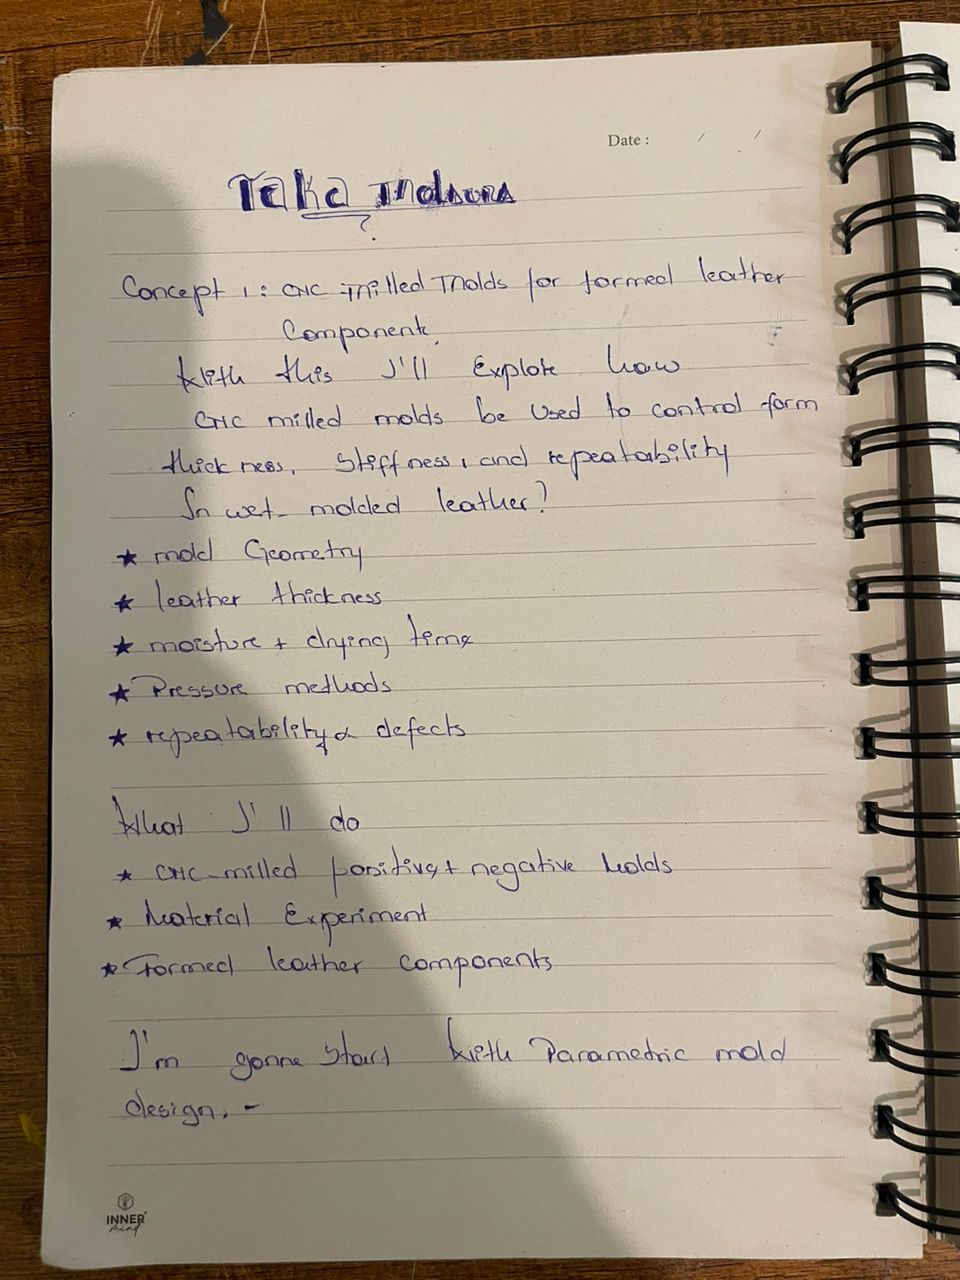 Date : / /
Taka Indsors
?
Concept 1 : CNC milled Molds for formed leather
Component.
With this I'll Explore how
CNC milled molds be used to control form
thickness, Stiffness, and repeatability
In wet-molded leather?
★ mold Geometry
★ leather thickness
★ moisture + drying time
★ Pressure methods
★ repeatability & defects
What I'll do
★ CNC-milled positive + negative Molds
★ Material Experiment
★ Formed leather components
I'm gonna start with Parametric mold
design. -
INNER
mind